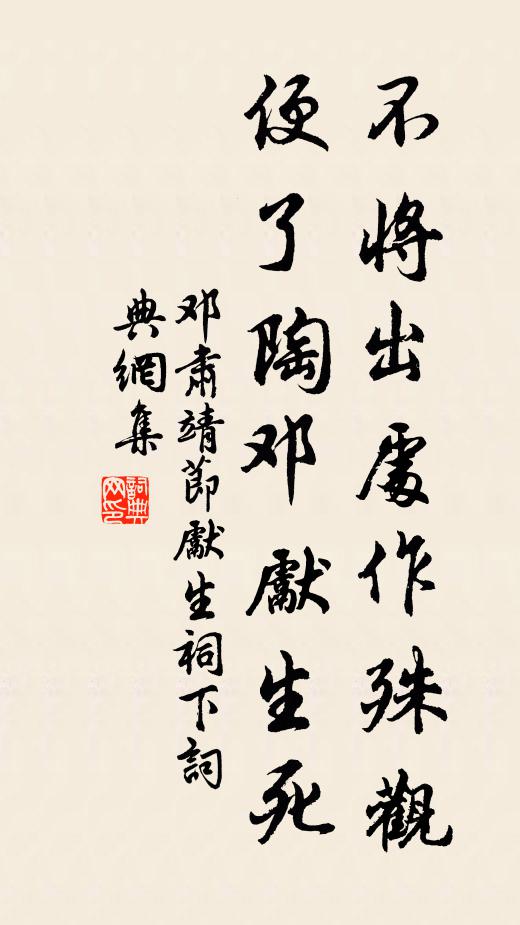 不將出處作殊觀
便了陶邓獻生死
邓肅靖節獻生祠下詞
典網集
詞典
网印